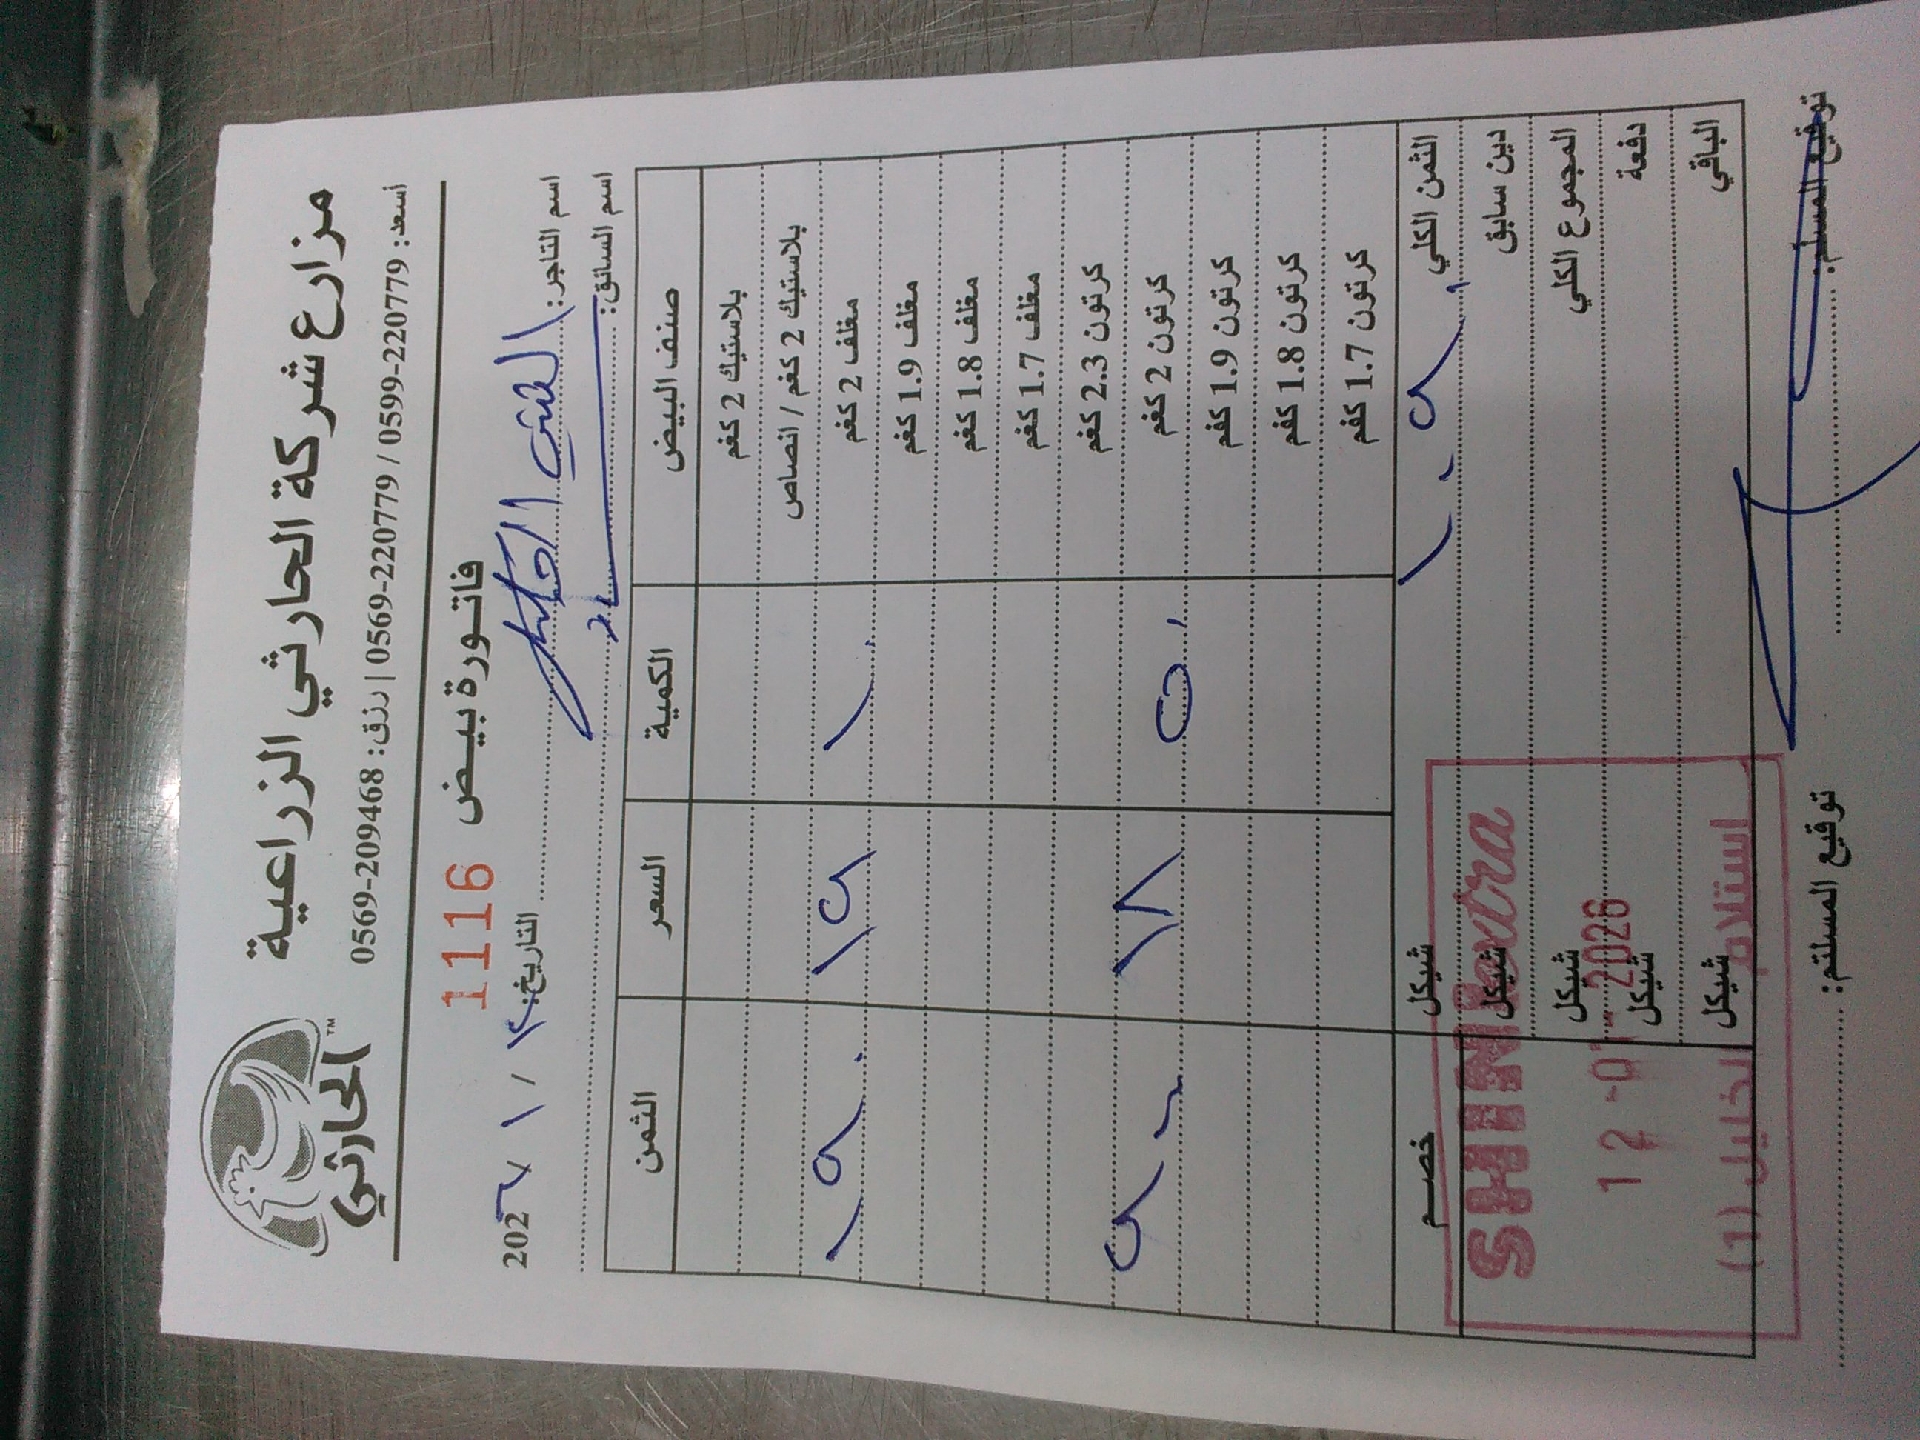 مزارع شركة الحارثي الزراعية
الحارثي™
أسعد: 0599-220779 / 0569-220779 | رزق: 0569-209468
فاتورة بيض 1116
اسم التاجر: التاريخ: ١٢ / ١ / 202٦
اسم السائق:
صنف البيض الكمية السعر الثمن
بلاستيك 2 كغم
بلاستيك 2 كغم / انصاص
مغلف 2 كغم ١٠ ١٩ ١٩٠
مغلف 1.9 كغم
مغلف 1.8 كغم
مغلف 1.7 كغم
كرتون 2.3 كغم
كرتون 2 كغم ٥٠ ١٨ ٩٠٠
كرتون 1.9 كغم
كرتون 1.8 كغم
كرتون 1.7 كغم
الثمن الكلي ١٠٩٠ شيكل خصم
دين سابق شيكل
المجموع الكلي شيكل
دفعة شيكل
الباقي شيكل
SHINI extra
12 -01- 2026
استلام الخليل (1)
توقيع المسلم: توقيع المستلم: